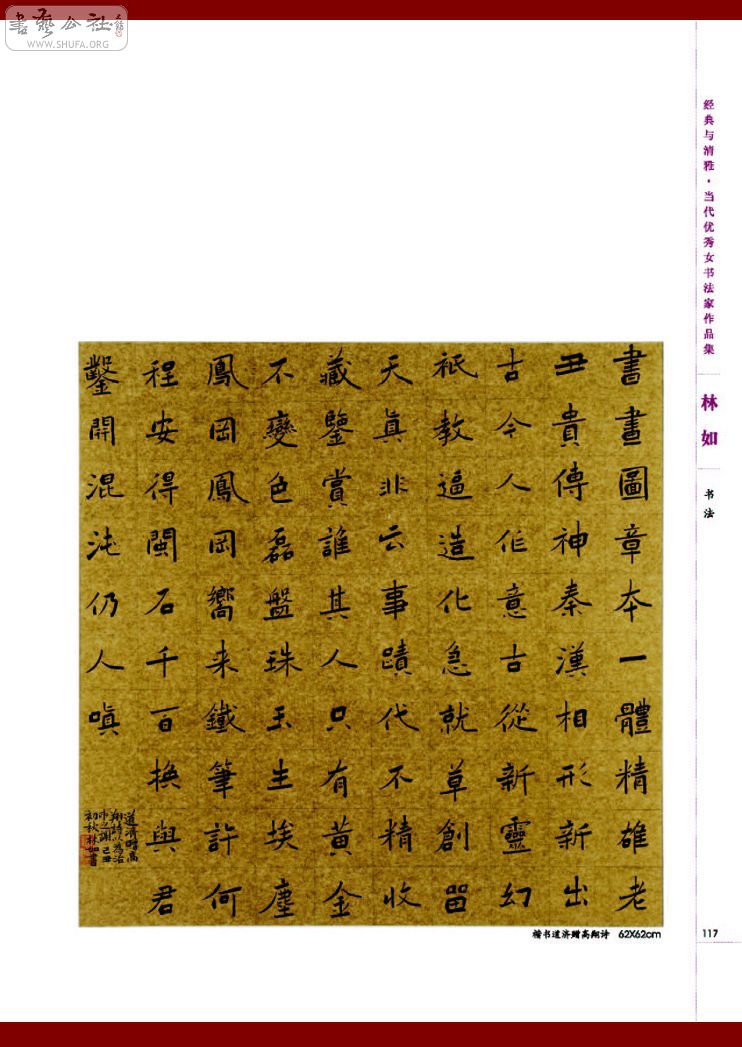 書藝公社
WWW.SHUFA.ORG
经典与清雅·当代优秀女书法家作品集
林如
书法
書畫圖章本一體精雄老
丑貴傳神秦漢相形新出
古今人作意古從新靈幻
祇教逼造化急就草創留
天真非云事蹟代不精收
藏鑒賞誰其人只有黃金
不變色磊盤珠玉生埃塵
鳳岡鳳岡嚮来鐵筆許何
程安得閩石千百換與君
鑿開混沌仍人嗔
道濟贈高
翔詩以為治
印之謝己丑
初秋林如書
楷书道济赠高翔诗 62X62cm
117